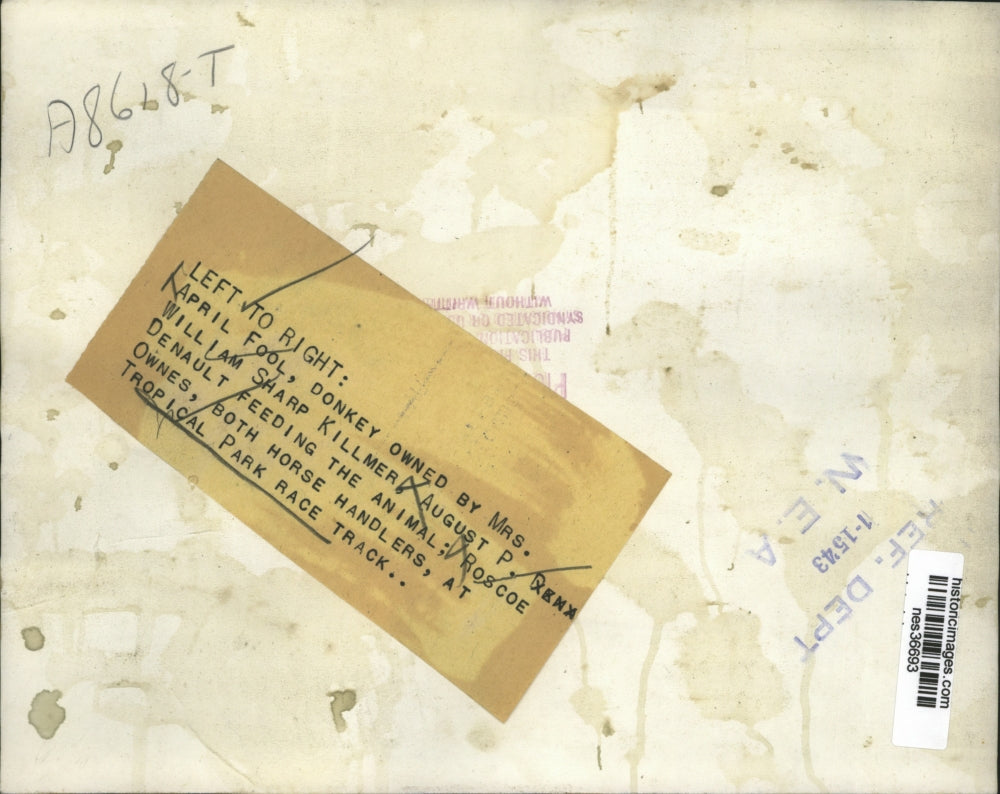 A8618-T
LEFT TO RIGHT:
APRIL FOOL, DONKEY OWNED BY MRS.
WILLIAM SHARP KILLMER; AUGUST P.
DENAULT FEEDING THE ANIMAL; ROSCOE
OWNES, BOTH HORSE HANDLERS, AT
TROPICAL PARK RACE TRACK..
THIS
SYNDICATED OR
WITHOUT
REF. DEPT
1-1543
N. E. A
historicimages.com
nes36693